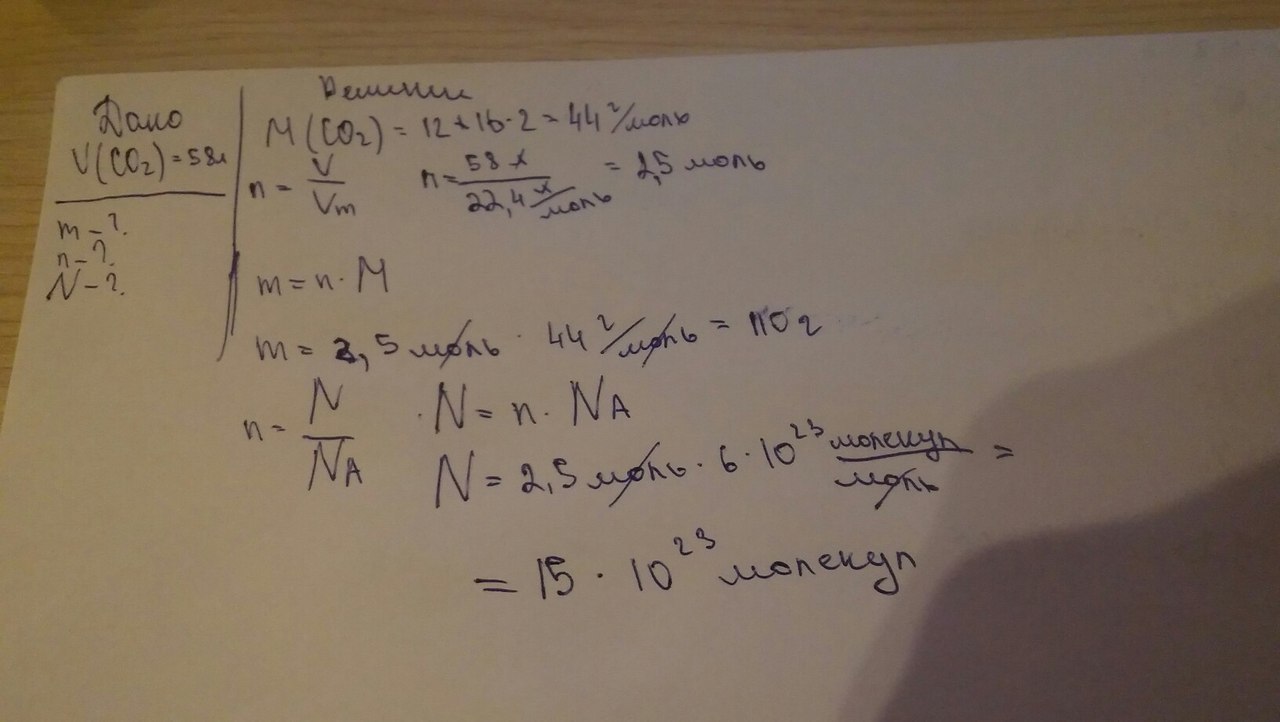 Дано
V(CO₂)=58л
m-?.
n-?.
N-?.
Решение
M(CO₂)=12+16·2=44 г/моль
n=V/Vm n=58 л/22,4 л/моль=2,5 моль
m=n·M
m=2,5 моль·44 г/моль=110 г
n=N/NA ·N=n·NA
N=2,5 моль·6·10²³ молекул/моль=
=15·10²³ молекул